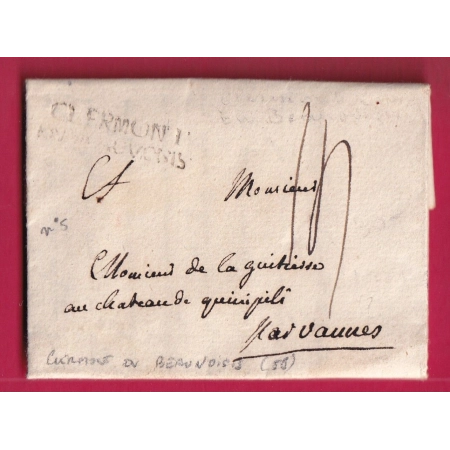 CLERMONT
EN BEAUVOISIS
A Monsieur
n°5
Monsieur de la guitiesse
au chateau de quinipili
par vannes
CLERMONT EN BEAUVOISIS (58)